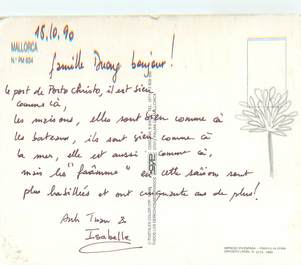 18.10.90
MALLORCA
N° PM 834
famille Duong bonjour !
le port de Porto Christo, il est bien
comme çà,
les maisons, elles sont bien comme çà
les bateaux, ils sont bien comme çà
la mer, elle est aussi comme çà,
mais les "fââmme" en cette saison sont
plus habillées et ont cinquante ans de plus!
Anh Tuan &
Isabelle